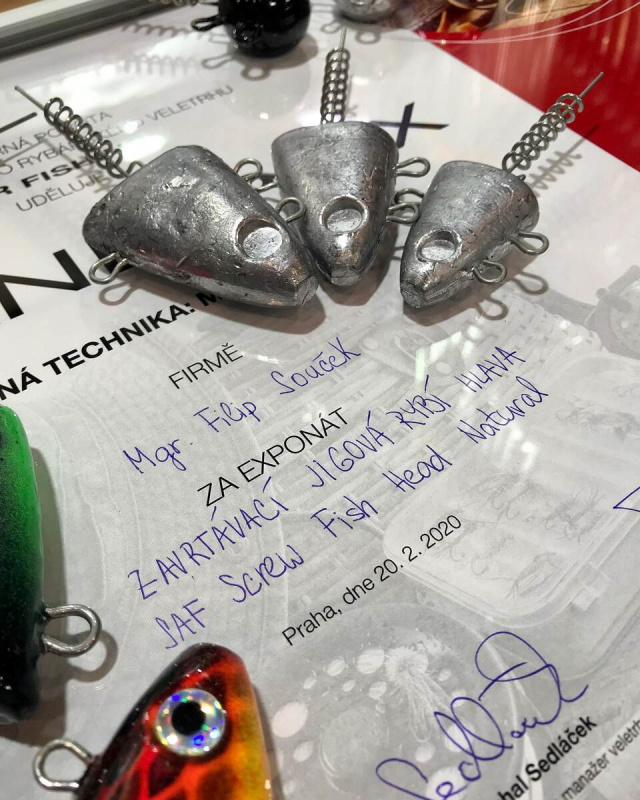 VELETRHU
UDĚLUJE
TECHNIKA:
FIRMĚ
Mgr. Filip Souček
ZA EXPONÁT
ZAVRTÁVACÍ JIGOVÁ RYBÍ HLAVA
SAF Screw Fish Head Natural
Praha, dne 20. 2. 2020
Sedláček
manažer